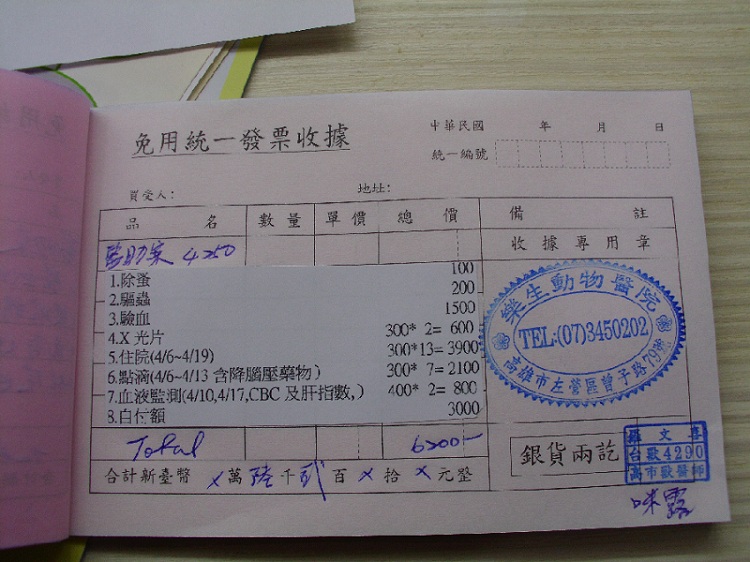 免用統一發票收據
中華民國 年 月 日
統一編號
買受人： 地址：
品名 數量 單價 總價 備註
4250
收據專用章
1.除蚤 100
2.驅蟲 200
3.驗血 1500
4.X 光片 300* 2= 600
5.住院(4/6~4/19) 300*13= 3900
6.點滴(4/6~4/13 含降腦壓藥物) 300* 7= 2100
7.血液監測(4/10,4/17,CBC 及肝指數,) 400* 2= 800
8.自付額 3000
樂生動物醫院
TEL:(07)3450202
高雄市左營區曾子路79號
Total 6200-
銀貨兩訖
合計新臺幣 x 萬 陸 千 貳 百 x 拾 x 元整
台獸4290
高市獸醫師
咪露